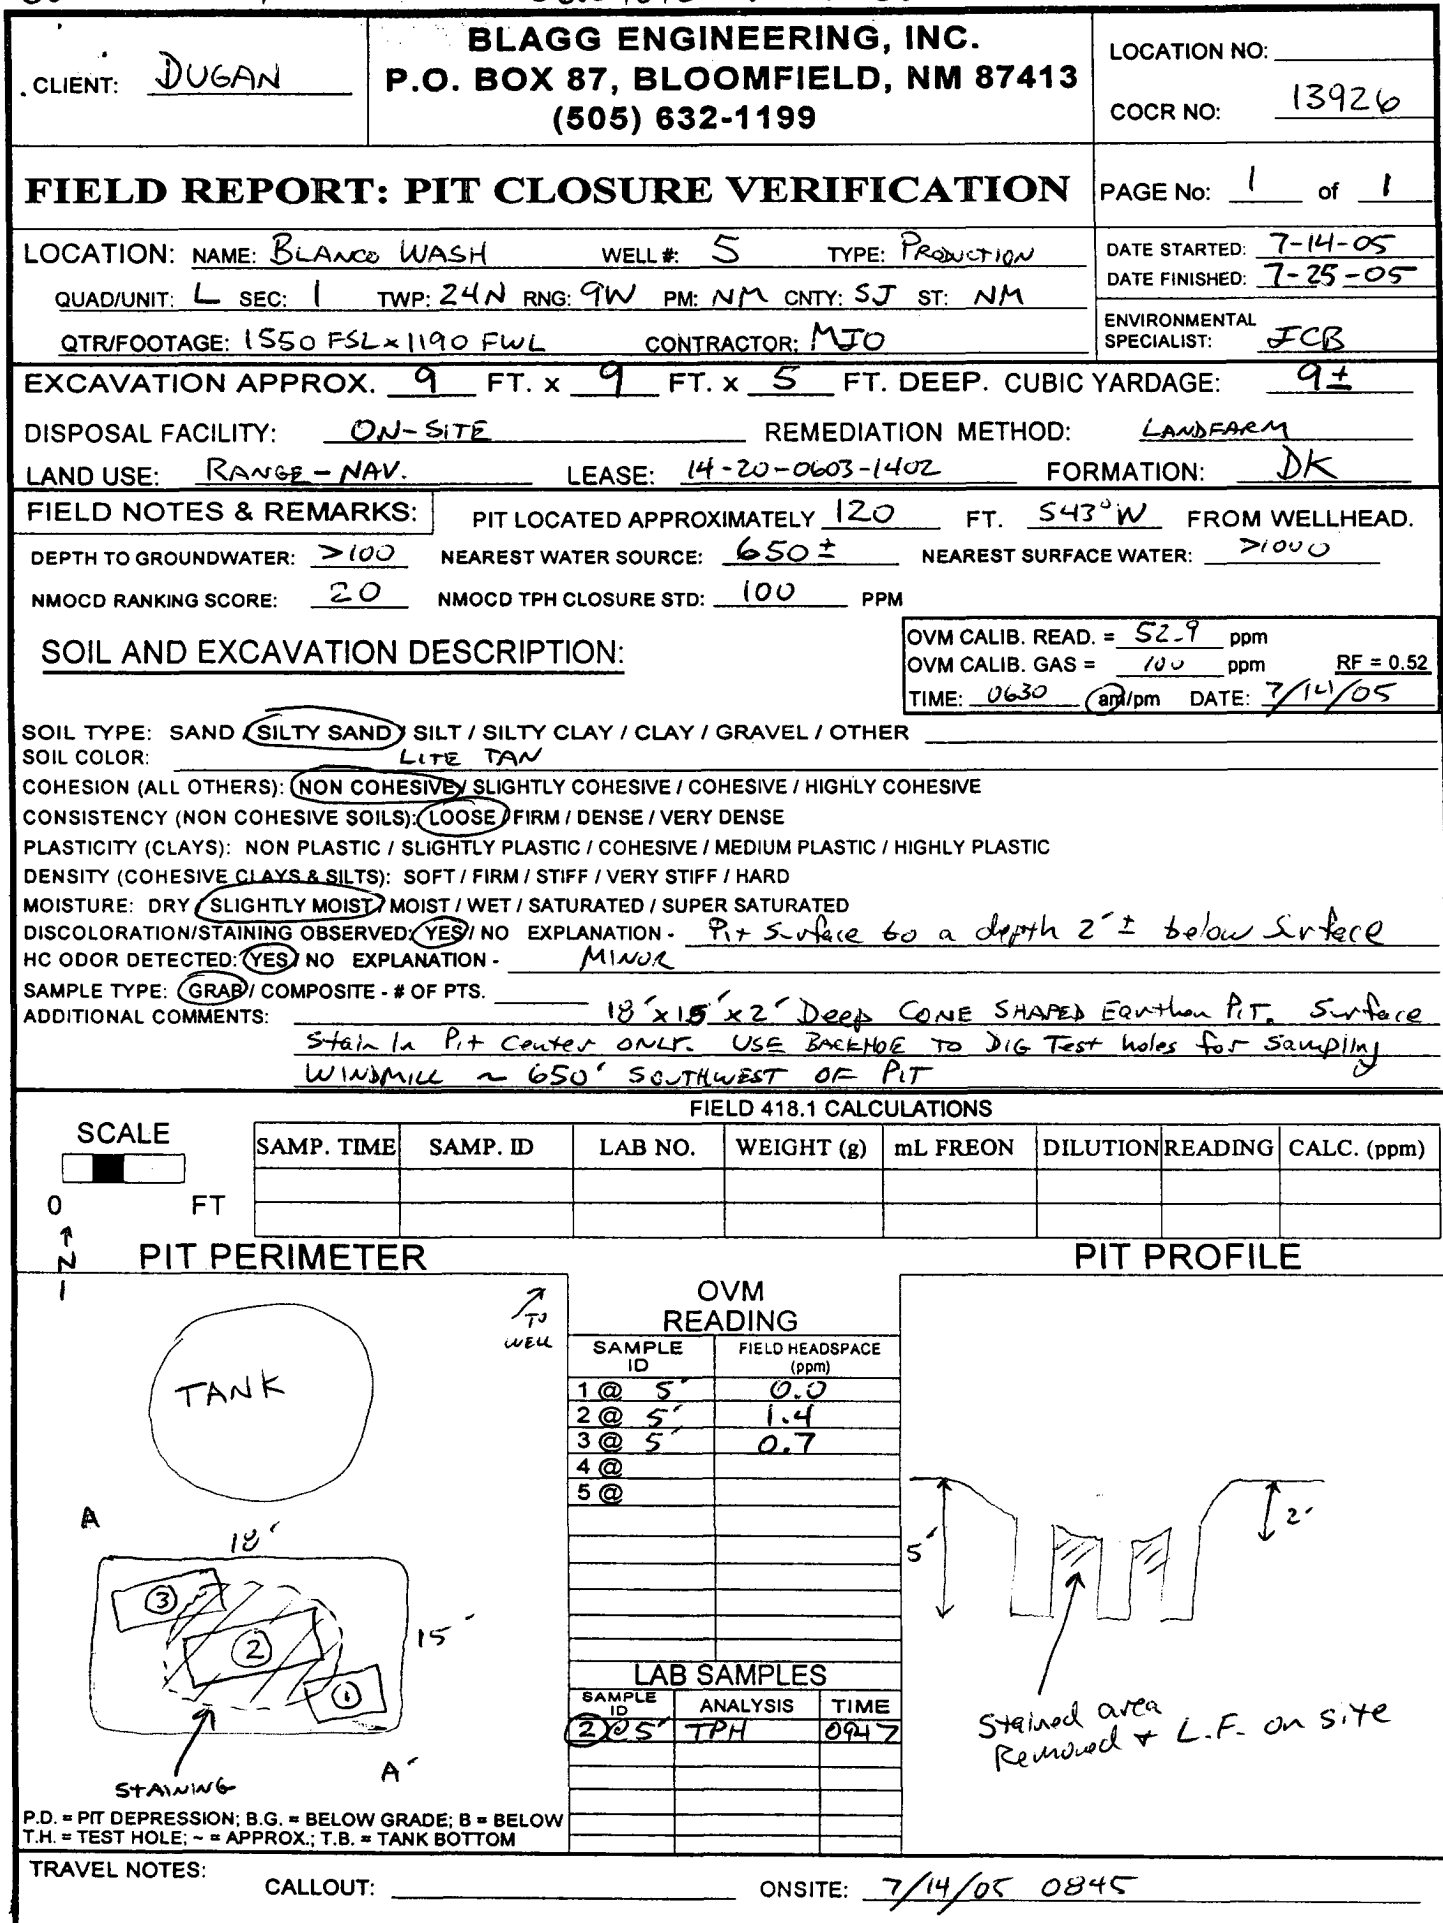 BLAGG ENGINEERING, INC.
P.O. BOX 87, BLOOMFIELD, NM 87413
(505) 632-1199
CLIENT: DUGAN
LOCATION NO:
COCR NO: 13926
FIELD REPORT: PIT CLOSURE VERIFICATION
PAGE No: 1 of 1
LOCATION: NAME: BLANCO WASH WELL #: 5 TYPE: PRODUCTION
DATE STARTED: 7-14-05
DATE FINISHED: 7-25-05
QUAD/UNIT: L SEC: 1 TWP: 24N RNG: 9W PM: NM CNTY: SJ ST: NM
QTR/FOOTAGE: 1550 FSL x 1190 FWL CONTRACTOR: MJO
ENVIRONMENTAL
SPECIALIST: JCB
EXCAVATION APPROX. 9 FT. x 9 FT. x 5 FT. DEEP. CUBIC YARDAGE: 9±
DISPOSAL FACILITY: ON-SITE REMEDIATION METHOD: LANDFARM
LAND USE: RANGE - NAV. LEASE: 14-20-0603-1402 FORMATION: DK
FIELD NOTES & REMARKS: PIT LOCATED APPROXIMATELY 120 FT. S43°W FROM WELLHEAD.
DEPTH TO GROUNDWATER: >100 NEAREST WATER SOURCE: 650± NEAREST SURFACE WATER: >1000
NMOCD RANKING SCORE: 20 NMOCD TPH CLOSURE STD: 100 PPM
SOIL AND EXCAVATION DESCRIPTION:
OVM CALIB. READ. = 52.9 ppm
OVM CALIB. GAS = 100 ppm RF = 0.52
TIME: 0630 am/pm DATE: 7/14/05
SOIL TYPE: SAND / SILTY SAND / SILT / SILTY CLAY / CLAY / GRAVEL / OTHER
SOIL COLOR: LITE TAN
COHESION (ALL OTHERS): NON COHESIVE / SLIGHTLY COHESIVE / COHESIVE / HIGHLY COHESIVE
CONSISTENCY (NON COHESIVE SOILS): LOOSE / FIRM / DENSE / VERY DENSE
PLASTICITY (CLAYS): NON PLASTIC / SLIGHTLY PLASTIC / COHESIVE / MEDIUM PLASTIC / HIGHLY PLASTIC
DENSITY (COHESIVE CLAYS & SILTS): SOFT / FIRM / STIFF / VERY STIFF / HARD
MOISTURE: DRY / SLIGHTLY MOIST / MOIST / WET / SATURATED / SUPER SATURATED
DISCOLORATION/STAINING OBSERVED: YES / NO EXPLANATION - Pit Surface to a depth 2'± below surface
HC ODOR DETECTED: YES / NO EXPLANATION - MINOR
SAMPLE TYPE: GRAB / COMPOSITE - # OF PTS.
ADDITIONAL COMMENTS: 18' x 15' x 2' Deep CONE SHAPED Earthen PIT. Surface
Stain In Pit Center ONLY. USE BACKHOE TO DIG Test holes for Sampling
WINDMILL ~ 650' SOUTHWEST OF PIT
FIELD 418.1 CALCULATIONS
SCALE
0 FT
SAMP. TIME SAMP. ID LAB NO. WEIGHT (g) mL FREON DILUTION READING CALC. (ppm)
N
PIT PERIMETER
TO
WELL
TANK
A
18'
3
2
1
15'
STAINING
A'
P.D. = PIT DEPRESSION; B.G. = BELOW GRADE; B = BELOW
T.H. = TEST HOLE; ~ = APPROX.; T.B. = TANK BOTTOM
OVM
READING
SAMPLE ID FIELD HEADSPACE (ppm)
1 @ 5' 0.0
2 @ 5' 1.4
3 @ 5' 0.7
4 @
5 @
LAB SAMPLES
SAMPLE ID ANALYSIS TIME
2 @ 5' TPH 0947
PIT PROFILE
5'
2'
Stained area
Removed + L.F. on site
TRAVEL NOTES:
CALLOUT: ONSITE: 7/14/05 0845